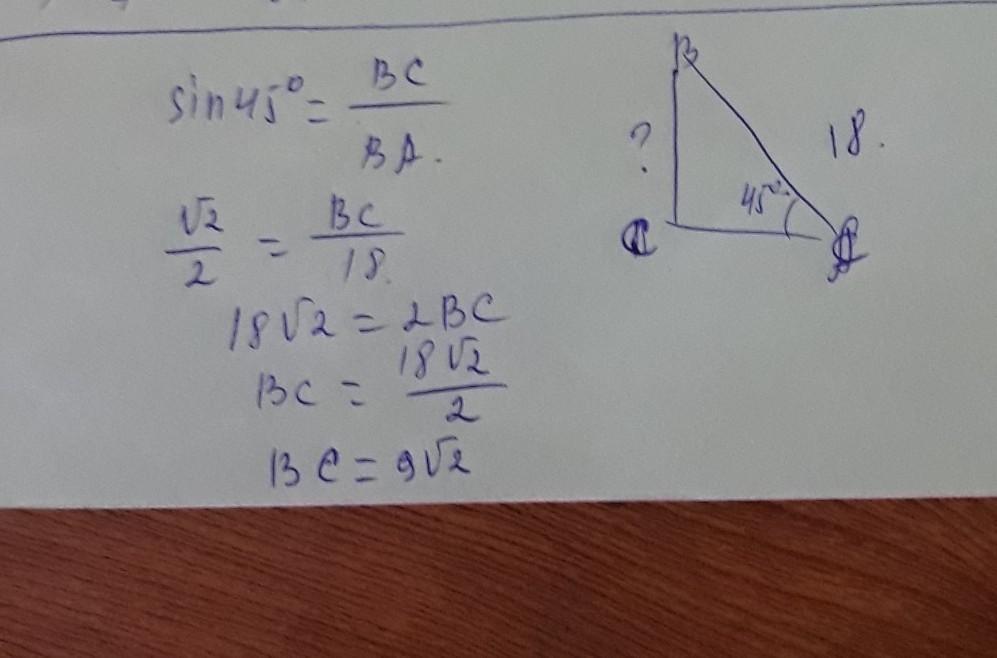 sin45° = BC / BA.
√2 / 2 = BC / 18.
18√2 = 2BC
BC = 18√2 / 2
BC = 9√2
B
?
18.
45°
C